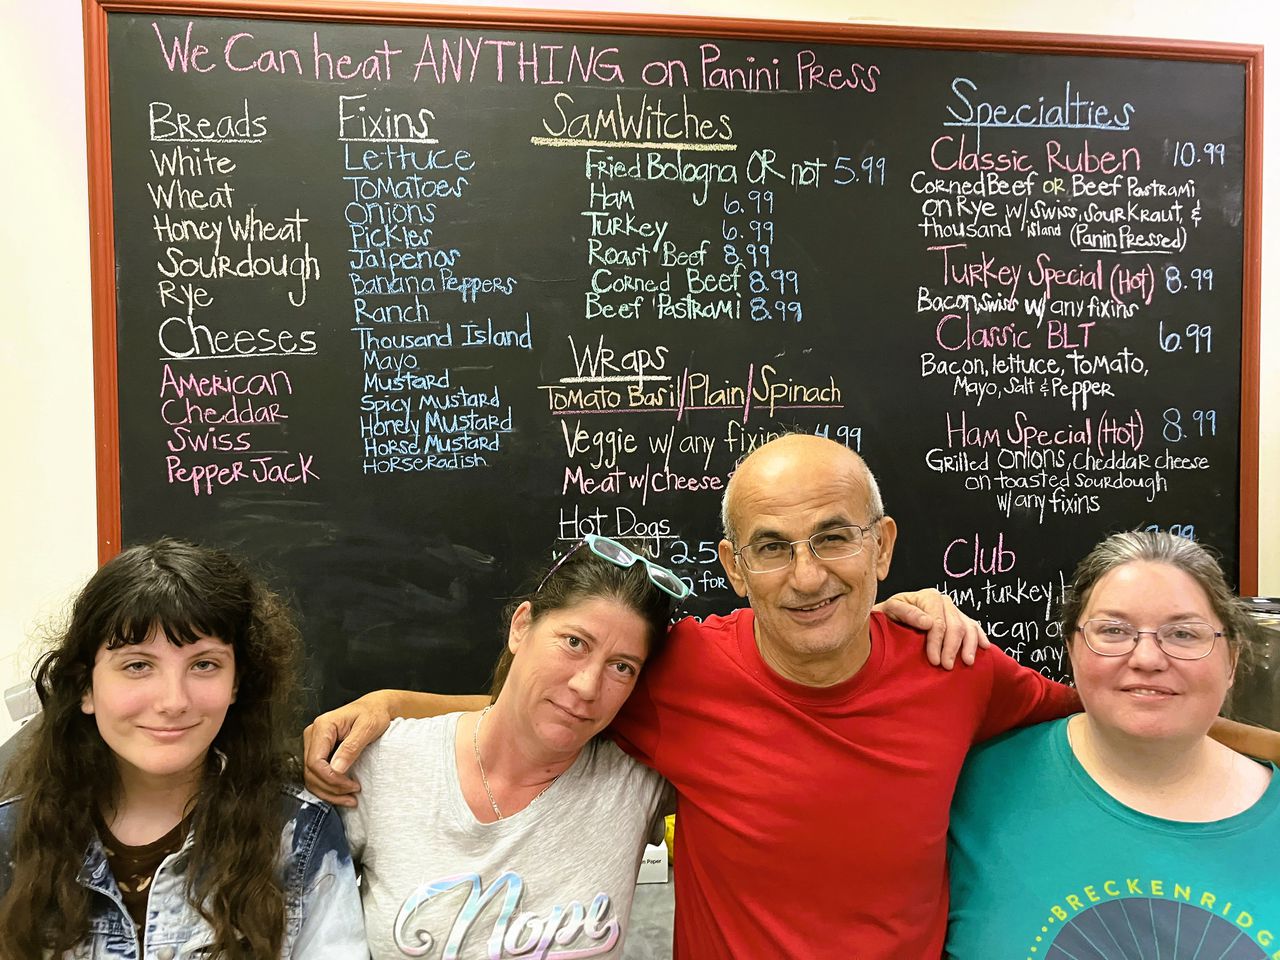 We Can heat ANYTHING on Panini Press
Breads
White
Wheat
Honey Wheat
Sourdough
Rye
Cheeses
American
Cheddar
Swiss
Pepper Jack
Fixins
Lettuce
Tomatoes
Onions
Pickles
Jalpenos
Banana Peppers
Ranch
Thousand Island
Mayo
Mustard
Spicy Mustard
Honey Mustard
Horse Mustard
Horseradish
SamWitches
Fried Bologna OR not 5.99
Ham 6.99
Turkey 6.99
Roast Beef 8.99
Corned Beef 8.99
Beef Pastrami 8.99
Wraps
Tomato Basil/Plain/Spinach
Veggie w/ any fixin 4.99
Meat w/cheese
Hot Dogs
2.5
for
Specialties
Classic Ruben 10.99
Corned Beef OR Beef Pastrami
on Rye w/ Swiss, Sour Kraut, &
thousand island (Panin Pressed)
Turkey Special (Hot) 8.99
Bacon, Swiss w/ any fixins
Classic BLT 6.99
Bacon, lettuce, tomato,
Mayo, Salt & Pepper
Ham Special (Hot) 8.99
Grilled Onions, cheddar cheese
on toasted sourdough
w/ any fixins
Club
Ham, turkey,
ican or
of any
Nope
BRECKENRIDG
Paper